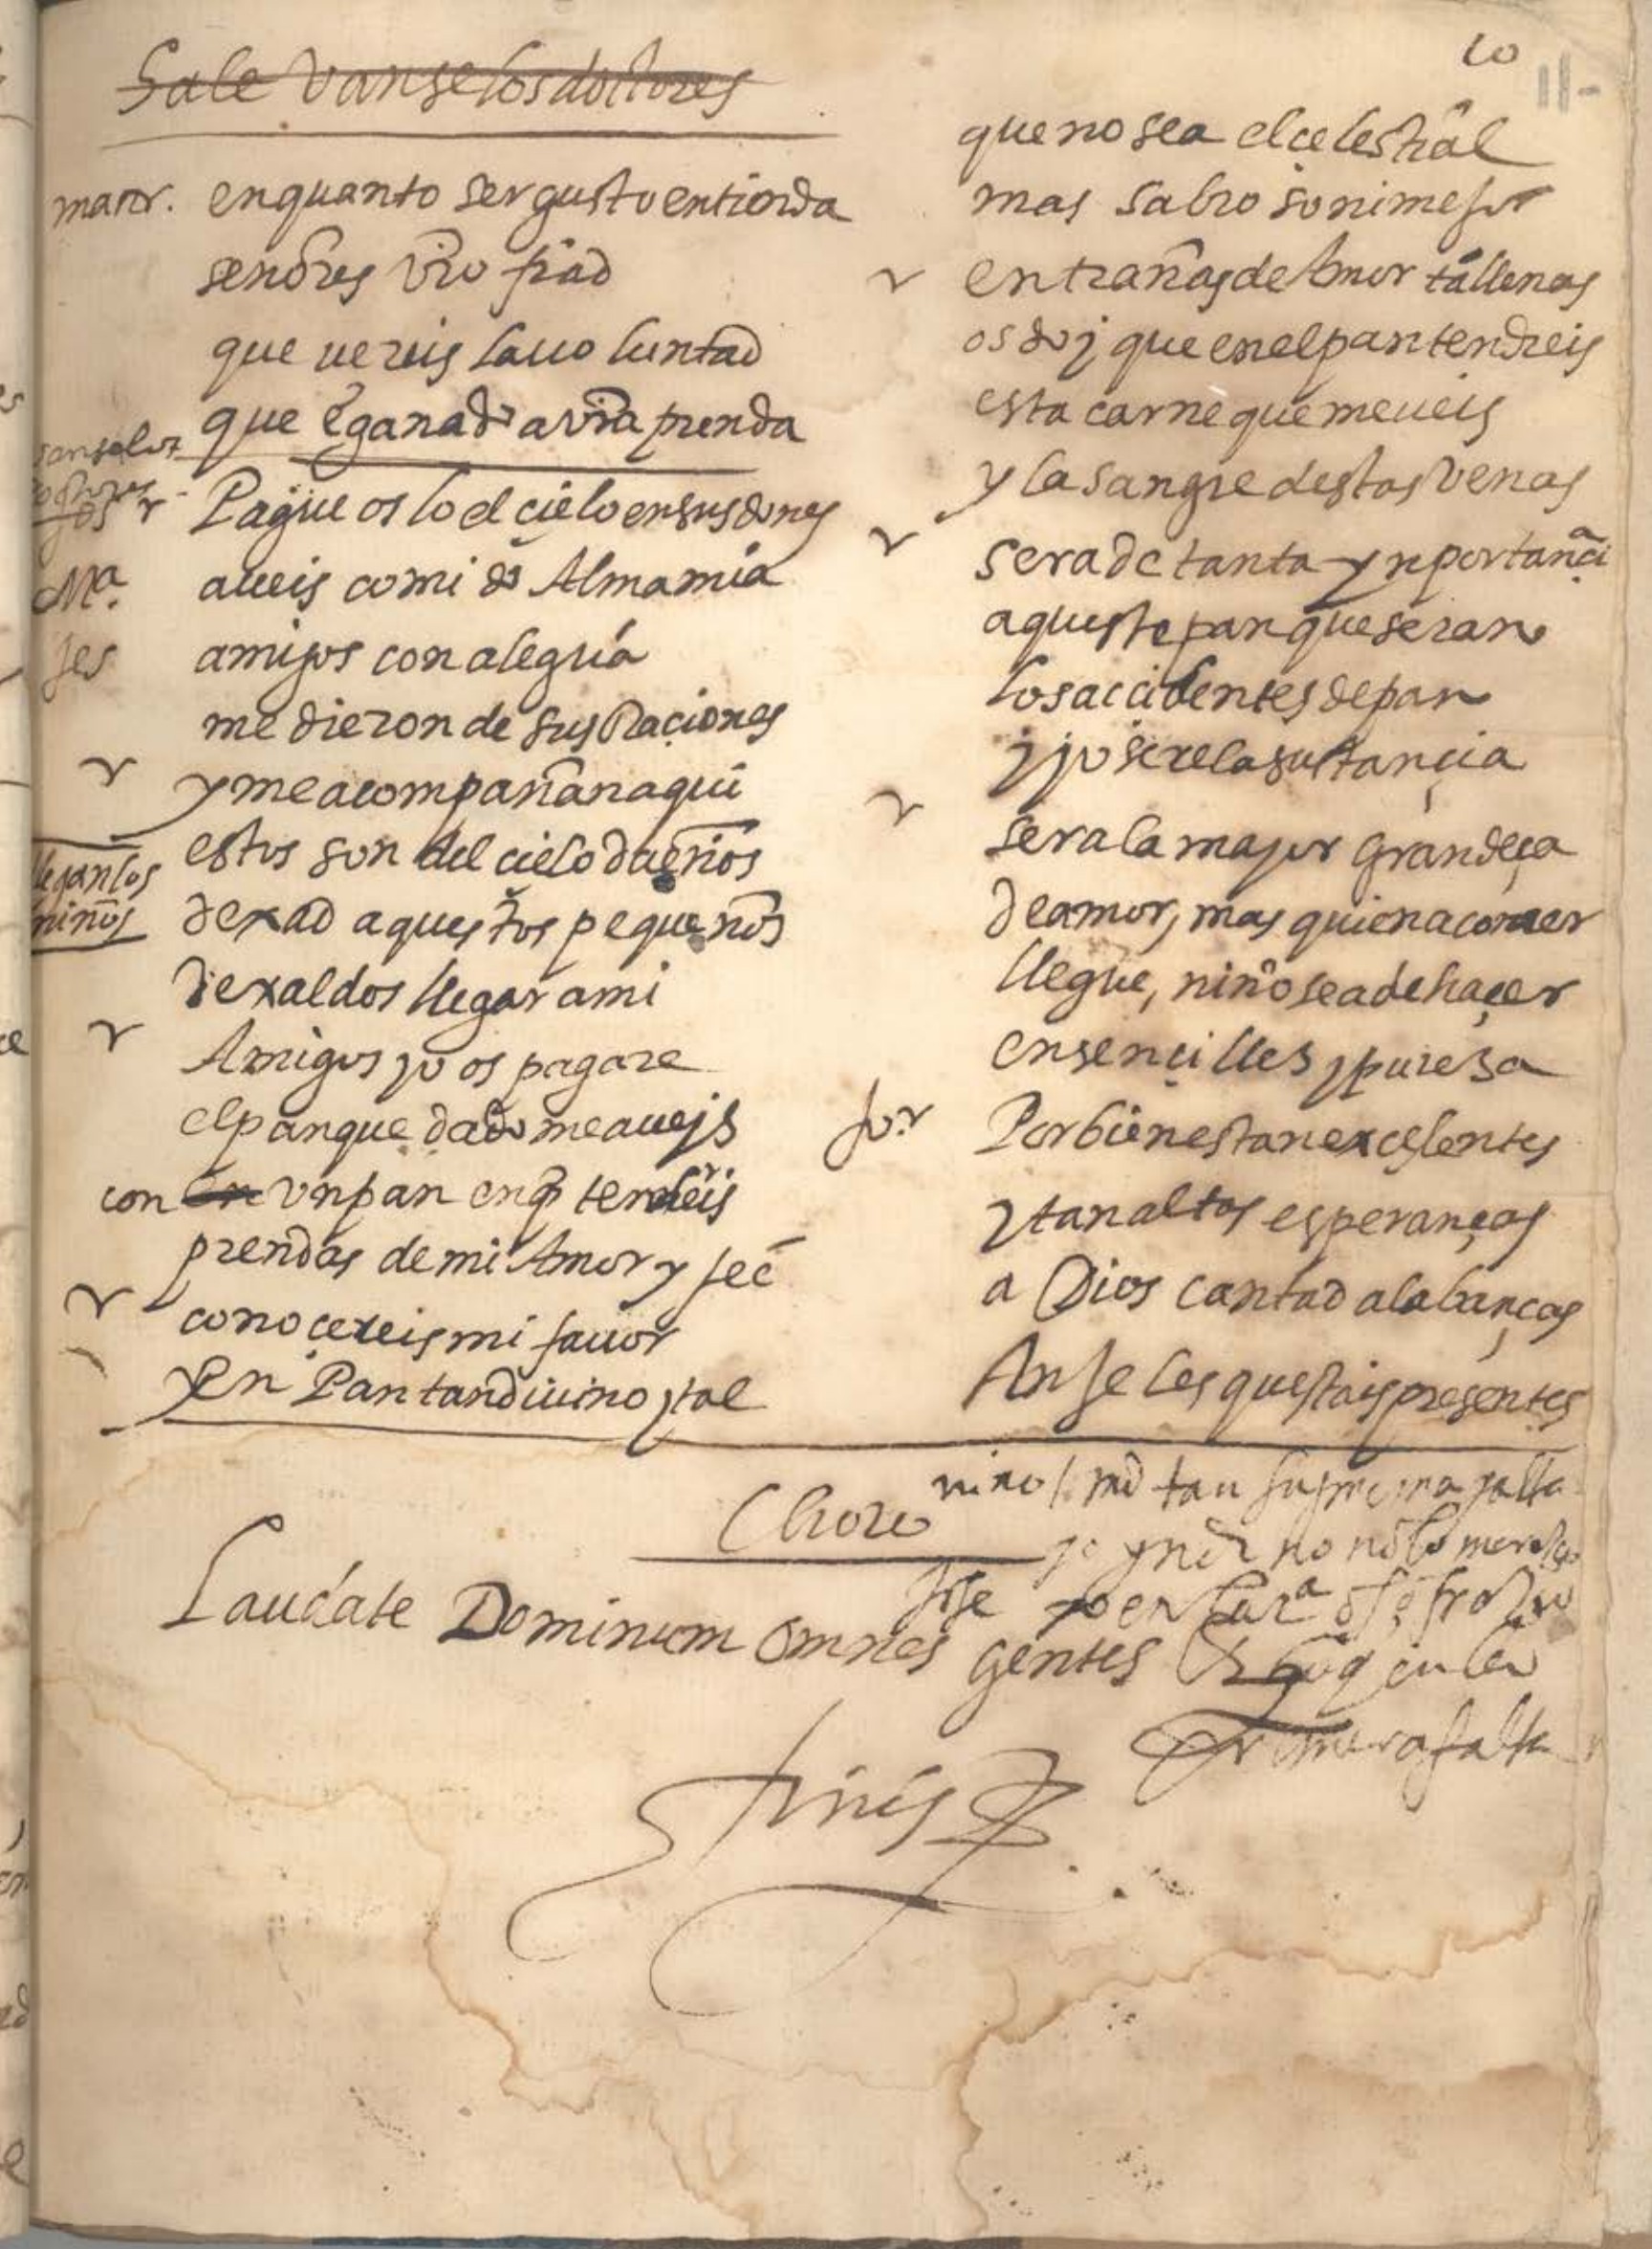 10
11-
Sale Vanse los doctores
maior. en quanto ser gusto entienda
señores vro fiad
que uereis la uoluntad
que e ganado a vra prenda
Vanse los
doctores
Jos Pague os lo el cielo en sus dones
Ma. aueis comido Alma mia
Jes amigos con alegria
me dieron de sus Raciones
y me acompañan aqui
estos son del cielo dueños
llegan los
niños
dexad aquestos pequeños
dexaldos llegar a mi
Amigos yo os pagare
el pan que dado me aueis
con en vn pan en q tendreis
prendas de mi Amor y fee
conoçereis mi fauor
y en Pan tan diuino y tal
que no sea el celestial
mas sabroso ni mejor
entrañas de Amor tā llenas
os doi que en el pan tendreis
esta carne que me ueis
y la sangre destas venas
sera de tanta ynportançia
aqueste pan que seran
los accidentes de pan
i jo sere la sustançia
sera la major grandeça
de amor, mas quien a comer
llegue, niño se a de haçer
en sençilles y puresa
Jo. Por bienes tan excelentes
y tan altas esperanças
a Dios cantad alabanças
Anjeles questais presentes
Choro
niño tan suprema
no merezco
Jose yo en
Laudate Dominum omnes gentes
en la
primera falta
finis